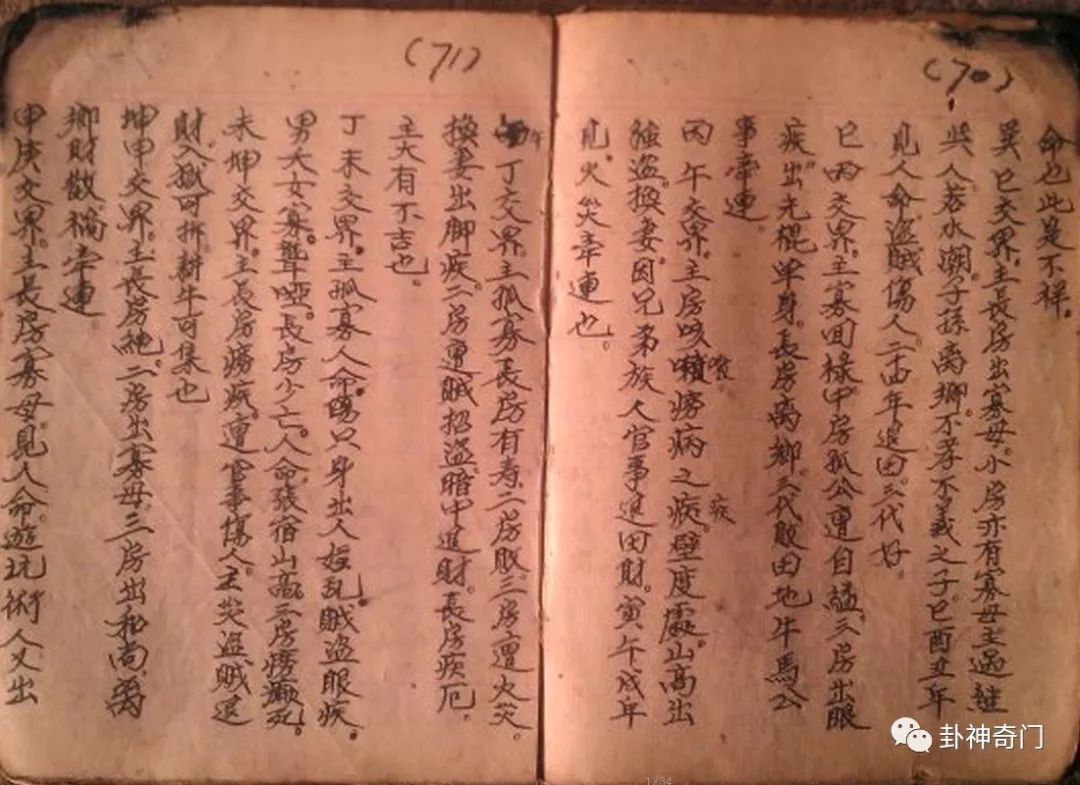 (70)
命也此是不祥。
巽巳交界。主長房出寡母。小房亦有寡母主過継
哭人。若水潮。子孫离鄉。不孝不義之子。巳酉丑年
見人命盗賊傷人二十四年退田。三代好。
巳丙交界。主寡回禄中房孤公遭自縊。三房出眼
疾。出光棍单身。長房离鄉。三代敗田地牛馬公
事牽連。
丙午交界。主房咳嗽痨病之疾。壁度處山高出
強盗。換妻。因兄弟族人官事退田財。寅午戌年
見火災牽連也。
(71)
午丁交界。主孤寡長房有寿二房敗。三房遭火災。
換妻出脚疾。二房重賊招盗。暗中退財。長房疾厄。
主大有不吉也。
丁未交界。主孤寡人命傷只身出人婬乱。賊盗眼疾。
男夭女寡。聾啞。長房少亡。人命。張宿山高。三房痨癲死。
未坤交界。主長房痨疾。遭官事傷人。主災盗賊退
財。入獄可拆耕牛可集也
坤申交界。主長房絶。二房出寡母。三房出和尚。离
鄉財散禍牽連
申庚交界。主長房寡母見人命。遊玩術人又出
卦神奇门
1/34